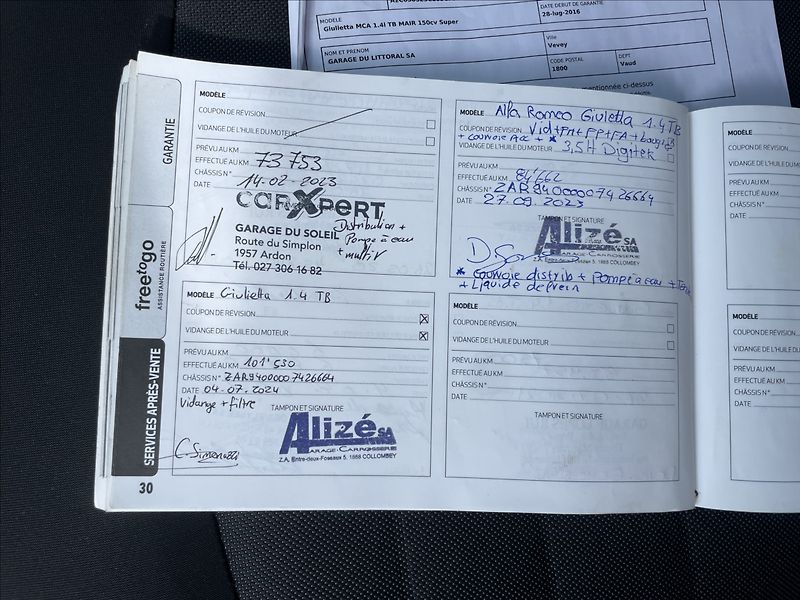 DATE DEBUT DE GARANTIE
28-lug-2016
MODELE
Giulietta MCA 1.4l TB MAIR 150cv Super
NOM ET PRENOM
GARAGE DU LITTORAL SA
Ville
Vevey
CODE POSTAL
1800
DEPT
Vaud
mentionnée ci-dessus
GARANTIE
freetogo
ASSISTANCE ROUTIÈRE
SERVICES APRÈS-VENTE
30
MODÈLE
COUPON DE RÉVISION
VIDANGE DE L'HUILE DU MOTEUR
PRÉVU AU KM
EFFECTUÉ AU KM 73 753
CHÂSSIS N°
DATE 14-02-2023
carXpert
GARAGE DU SOLEIL
Route du Simplon
1957 Ardon
Tél. 027 306 16 82
Distribution +
Pompe à eau
+ multi V
MODÈLE Alfa Romeo Giulietta 1.4 TB
COUPON DE RÉVISION Vid+FH+FP+FA+
+ courroie Acc + *
VIDANGE DE L'HUILE DU MOTEUR 3,5H Digitek
PRÉVU AU KM
EFFECTUÉ AU KM 84'662
CHÂSSIS N° ZAR94000007426664
DATE 27.09.2023
TAMPON ET SIGNATURE
Alizé SA
GARAGE-CARROSSERIE
1868 COLLOMBEY
* courroie distrib + Pompe à eau +
+ Liquide de frein
MODÈLE Giulietta 1.4 TB
COUPON DE RÉVISION
VIDANGE DE L'HUILE DU MOTEUR
PRÉVU AU KM
EFFECTUÉ AU KM 101'530
CHÂSSIS N° ZAR94000007426664
DATE 04.07.2024
Vidange + filtre
TAMPON ET SIGNATURE
Alizé SA
GARAGE-CARROSSERIE
Z.A. Entre-deux-Fossaux 5, 1868 COLLOMBEY
MODÈLE
COUPON DE RÉVISION
VIDANGE DE L'HUILE DU MOTEUR
PRÉVU AU KM
EFFECTUÉ AU KM
CHÂSSIS N°
DATE
TAMPON ET SIGNATURE
MODÈLE
COUPON DE RÉVISION
VIDANGE DE L'HUILE
PRÉVU AU KM
EFFECTUÉ AU KM
CHÂSSIS N°
DATE
MODÈLE
COUPON DE RÉVISION
VIDANGE DE L'HUILE
PRÉVU AU KM
EFFECTUÉ AU KM
CHÂSSIS N°
DATE